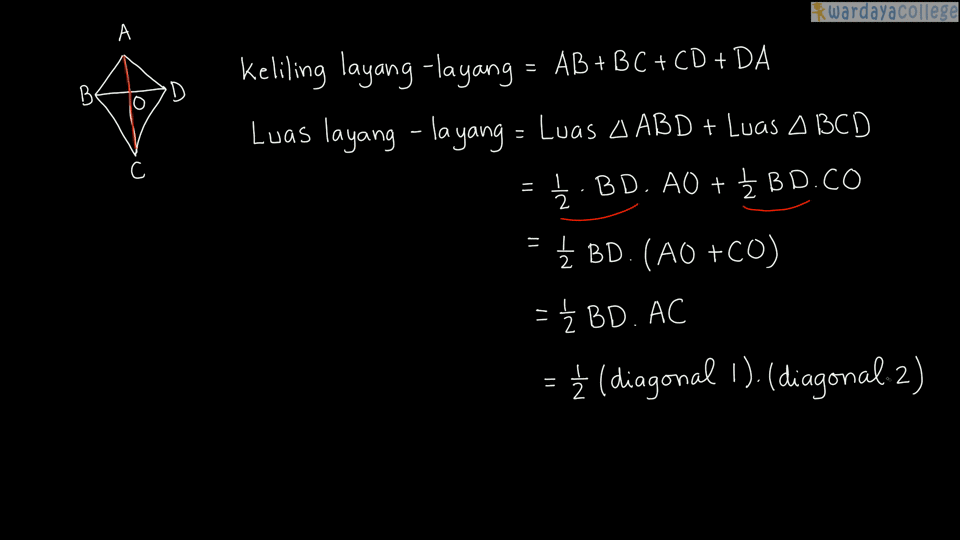 wardayacollege
A
B
D
O
C
Keliling layang-layang = AB + BC + CD + DA
Luas layang-layang = Luas △ABD + Luas △BCD
= 1/2 · BD · AO + 1/2 BD · CO
= 1/2 BD · (AO + CO)
= 1/2 BD · AC
= 1/2 (diagonal 1) · (diagonal 2)